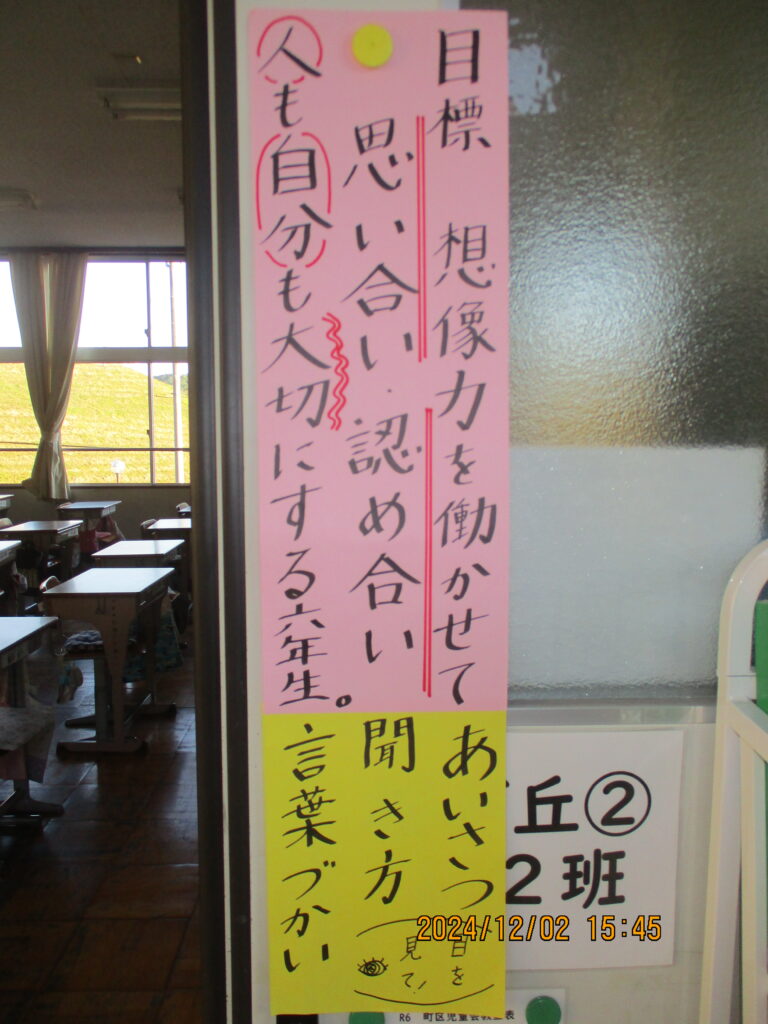 目標 想像力を働かせて
思い合い・認め合い
人も自分も大切にする六年生。
あいさつ
聞き方
目を
見て!
言葉づかい
丘②
2班
2024/12/02 15:45
R6 町区児童会